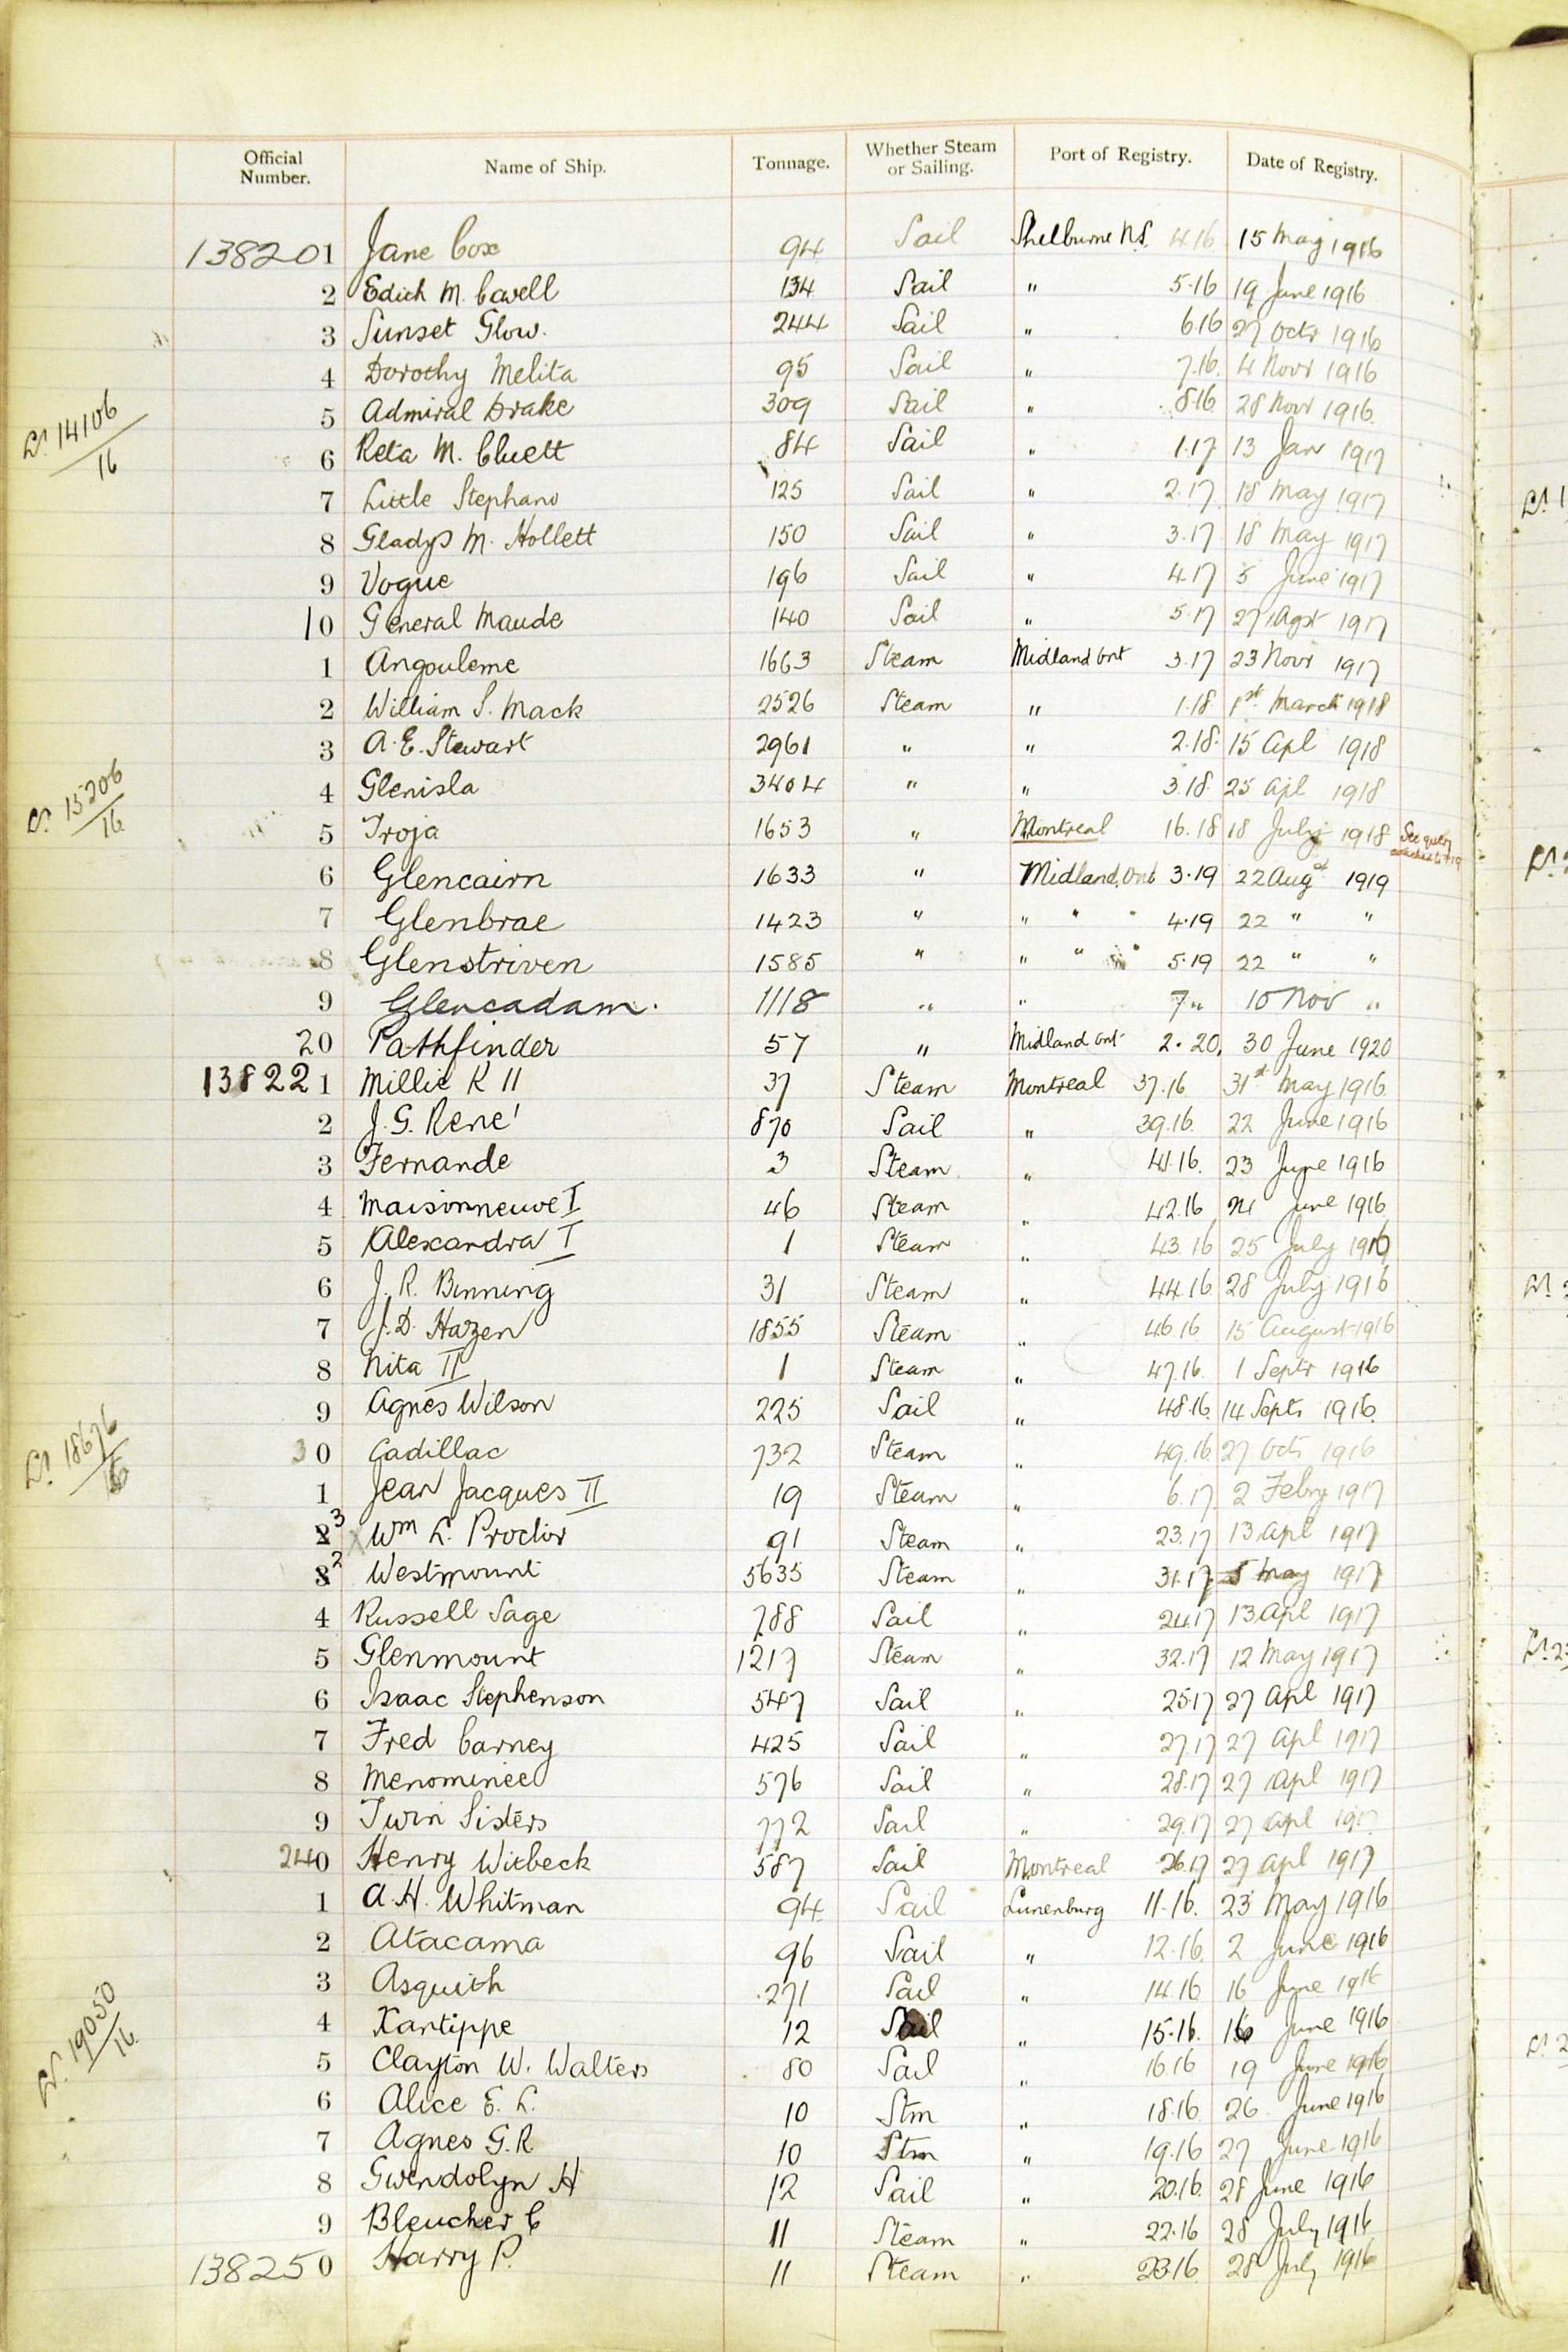 Official Number. Name of Ship. Tonnage. Whether Steam or Sailing. Port of Registry. Date of Registry.
138201 Jane Cox 94 Sail Shelburne N.S. 4.16 15 May 1916
2 Edith M. Cavell 134 Sail " 5.16 19 June 1916
3 Sunset Glow. 244 Sail " 6.16 27 Octr 1916
4 Dorothy Melita 95 Sail " 7.16. 4 Novr 1916
5 Admiral Drake 309 Sail " 8.16 28 Novr 1916.
Ls. 14106/16
6 Reta M. Cluett 84 Sail " 1.17 13 Jan 1917
7 Little Stephano 125 Sail " 2.17. 18 May 1917
8 Gladys M. Hollett 150 Sail " 3.17 18 May 1917
9 Vogue 196 Sail " 4.17 5 June 1917
10 General Maude 140 Sail " 5.17 27 Agst 1917
1 Angouleme 1663 Steam Midland Ont 3.17 23 Novr 1917
2 William S. Mack 2526 Steam " 1.18 1st March 1918
3 A.E. Stewart 2961 " " 2.18. 15 Apl 1918
4 Glenisla 3404 " " 3.18. 25 Apl 1918
Ls. 15206/16
5 Troja 1653 " Montreal 16.18 18 July 1918 See query
6 Glencairn 1633 " Midland, Ont 3.19 22 Augst 1919
7 Glenbrae 1423 " " " " 4.19 22 " "
8 Glenstriven 1585 " " " " 5.19 22 " "
9 Glencadam. 1118 " " 7 " 10 Nov "
20 Pathfinder 57 " Midland Ont 2.20. 30 June 1920
138221 Millie K II 37 Steam Montreal 37.16 31st May 1916.
2 J.G. René 870 Sail " 39.16. 22 June 1916
3 Fernande 3 Steam " 41.16. 23 June 1916
4 Maisonneuve I 46 Steam " 42.16 24 June 1916
5 Alexandra I 1 Steam " 43.16 25 July 1916
6 J.R. Binning 31 Steam " 44.16 28 July 1916
7 J.D. Hazen 1855 Steam " 46.16 15 August 1916
8 Nita II 1 Steam " 47.16. 1 Septr 1916
9 Agnes Wilson 225 Sail " 48.16. 14 Septr 1916.
Ls. 18676/16
30 Cadillac 732 Steam " 49.16 27 Octr 1916
1 Jean Jacques II 19 Steam " 6.17 2 Febry 1917
2 3 Wm L. Proctor 91 Steam " 23.17 13 Apl 1917
3 2 Westmount 5635 Steam " 31.17 5 May 1917
4 Russell Sage 788 Sail " 24.17 13 Apl 1917
5 Glenmount 1217 Steam " 32.17 12 May 1917
6 Isaac Stephenson 547 Sail " 25.17 27 Apl 1917
7 Fred Carney 425 Sail " 27.17 27 Apl 1917
8 Menominee 576 Sail " 28.17 27 Apl 1917
9 Twin Sisters 772 Sail " 29.17 27 Apl 1917
240 Henry Witbeck 587 Sail Montreal 26.17 27 Apl 1917
1 A.H. Whitman 94 Sail Lunenburg 11.16. 23 May 1916
2 Atacama 96 Sail " 12.16. 2 June 1916
3 Asquith 271 Sail " 14.16 16 June 1916
4 Xantippe 12 Sail " 15.16. 16 June 1916
Ls. 19050/16
5 Clayton W. Walters 80 Sail " 16.16 19 June 1916
6 Alice E. L. 10 Stm " 18.16 26 June 1916
7 Agnes G.R 10 Stm " 19.16 27 June 1916
8 Gwendolyn H 12 Sail " 20.16. 28 June 1916
9 Bleucher C 11 Steam " 22.16 28 July 1916
138250 Harry P. 11 Steam " 23.16 28 July 1916